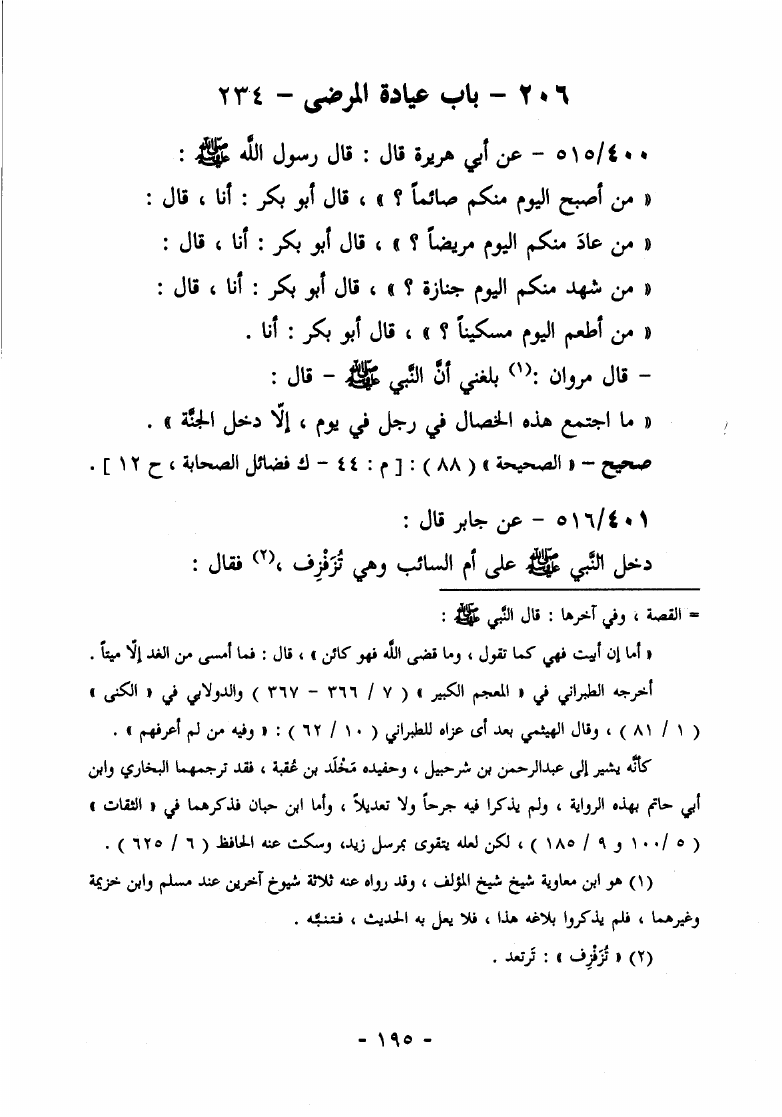 ٢٠٦ – باب عيادة المرضى – ٢٣٤
٥١٥/٤٠٠ – عن أبي هريرة قال : قال رسول اللَّه ﷺ :
« من أصبح اليوم منكم صائماً ؟ » ، قال أبو بكر : أنا ، قال :
« من عادَ منكم اليوم مريضاً ؟ » ، قال أبو بكر : أنا ، قال :
« من شهد منكم اليوم جنازة ؟ » ، قال أبو بكر : أنا ، قال :
« من أطعم اليوم مسكيناً ؟ » ، قال أبو بكر : أنا .
– قال مروان :(١) بلغني أنَّ النَّبي ﷺ – قال :
« ما اجتمع هذه الخصال في رجل في يوم ، إلّا دخل الجنَّة » .
صحيح – « الصحيحة » ( ٨٨ ) : [ م : ٤٤ – ك فضائل الصحابة ، ح ١٢ ] .
٥١٦/٤٠١ – عن جابر قال :
دخل النَّبي ﷺ على أم السائب وهي تُزَفْزِف ،(٢) فقال :
= القصة ، وفي آخرها : قال النَّبي ﷺ :
« أما إن أبيت فهي كما تقول ، وما قضى اللَّه فهو كائن » ، قال : فما أمسى من الغد إلّا ميتاً .
أخرجه الطبراني في « المعجم الكبير » ( ٧ / ٣٦٦ – ٣٦٧ ) والدولابي في « الكنى »
( ١ / ٨١ ) ، وقال الهيثمي بعد أى عزاه للطبراني ( ١٠ / ٦٢ ) : « وفيه من لم أعرفهم » .
كأنَّه يشير إلى عبدالرحمن بن شرحبيل ، وحفيده مَخْلَد بن عُقبة ، فقد ترجمهما البخاري وابن
أبي حاتم بهذه الرواية ، ولم يذكرا فيه جرحاً ولا تعديلاً ، وأما ابن حبان فذكرهما في « الثقات »
( ٥ /١٠٠ و ٩ / ١٨٥ ) ، لكن لعله يتقوى بمرسل زيد، وسكت عنه الحافظ ( ٦ / ٦٢٥ ) .
(١) هو ابن معاوية شيخ شيخ المؤلف ، وقد رواه عنه ثلاثة شيوخ آخرين عند مسلم وابن خزيمة
وغيرهما ، فلم يذكروا بلاغه هذا ، فلا يعل به الحديث ، فـتـنبَّه .
(٢) « تُزَفْزِف » : تَرتعد .
- ١٩٥ -